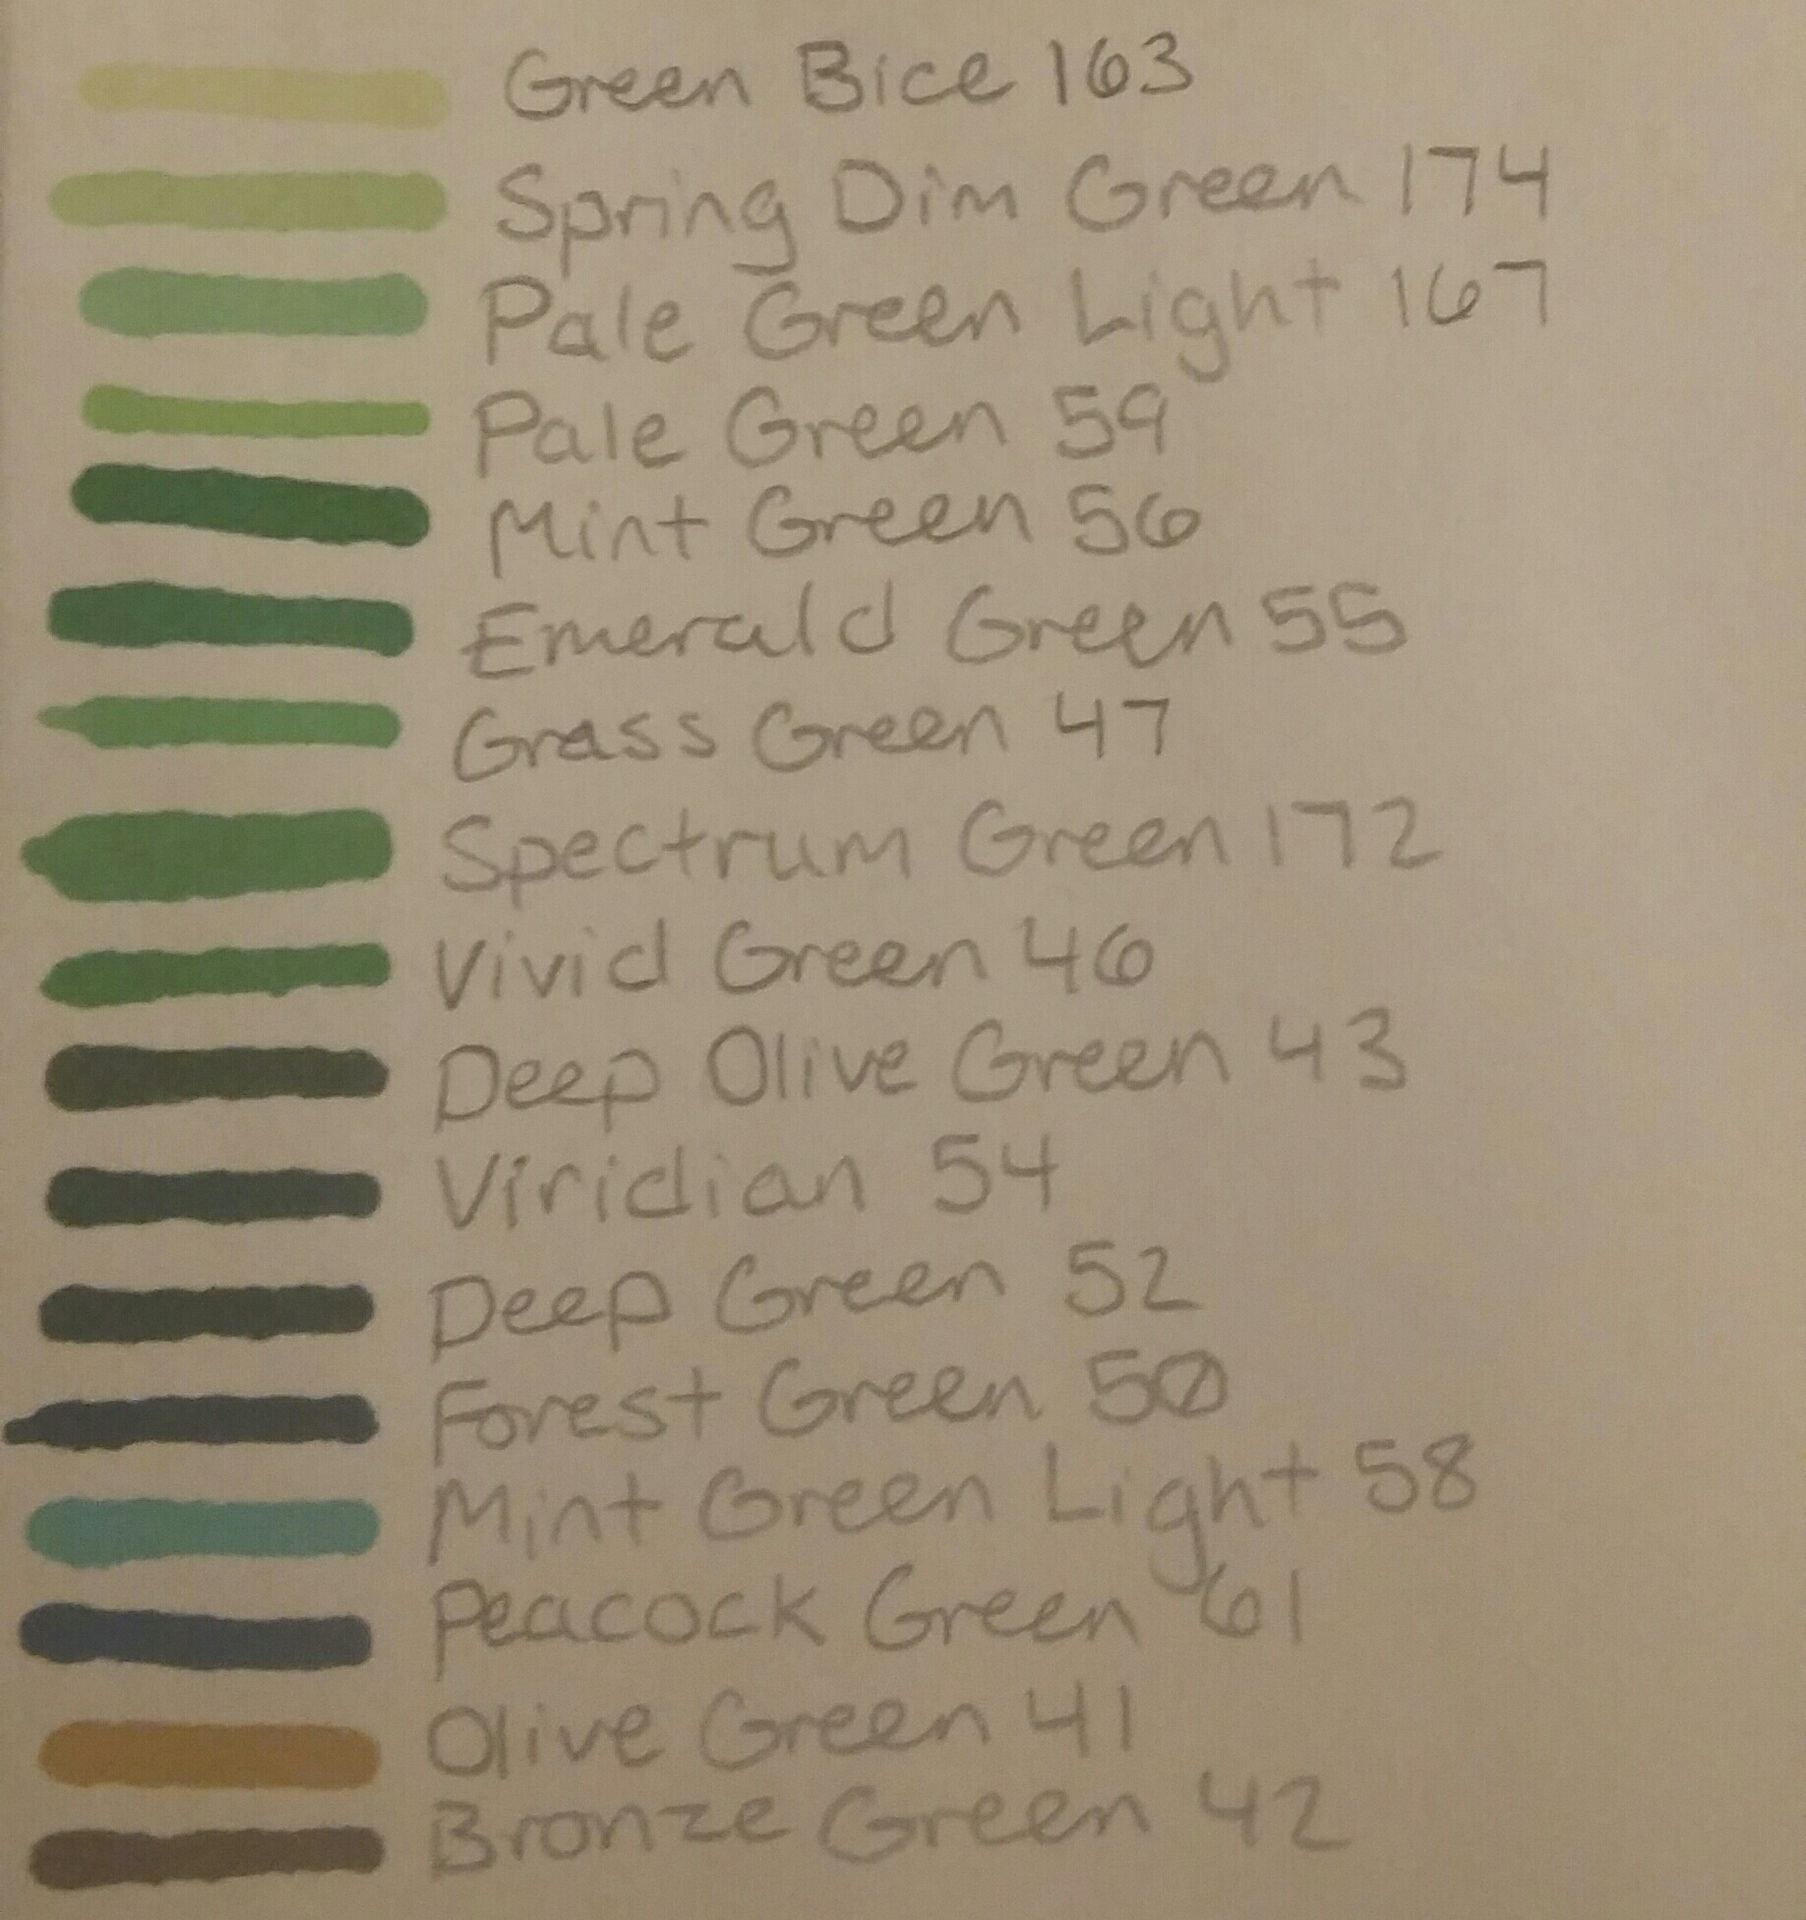 Green Bice 163
Spring Dim Green 174
Pale Green Light 167
Pale Green 59
Mint Green 56
Emerald Green 55
Grass Green 47
Spectrum Green 172
Vivid Green 46
Deep Olive Green 43
Viridian 54
Deep Green 52
Forest Green 50
Mint Green Light 58
Peacock Green 61
Olive Green 41
Bronze Green 42